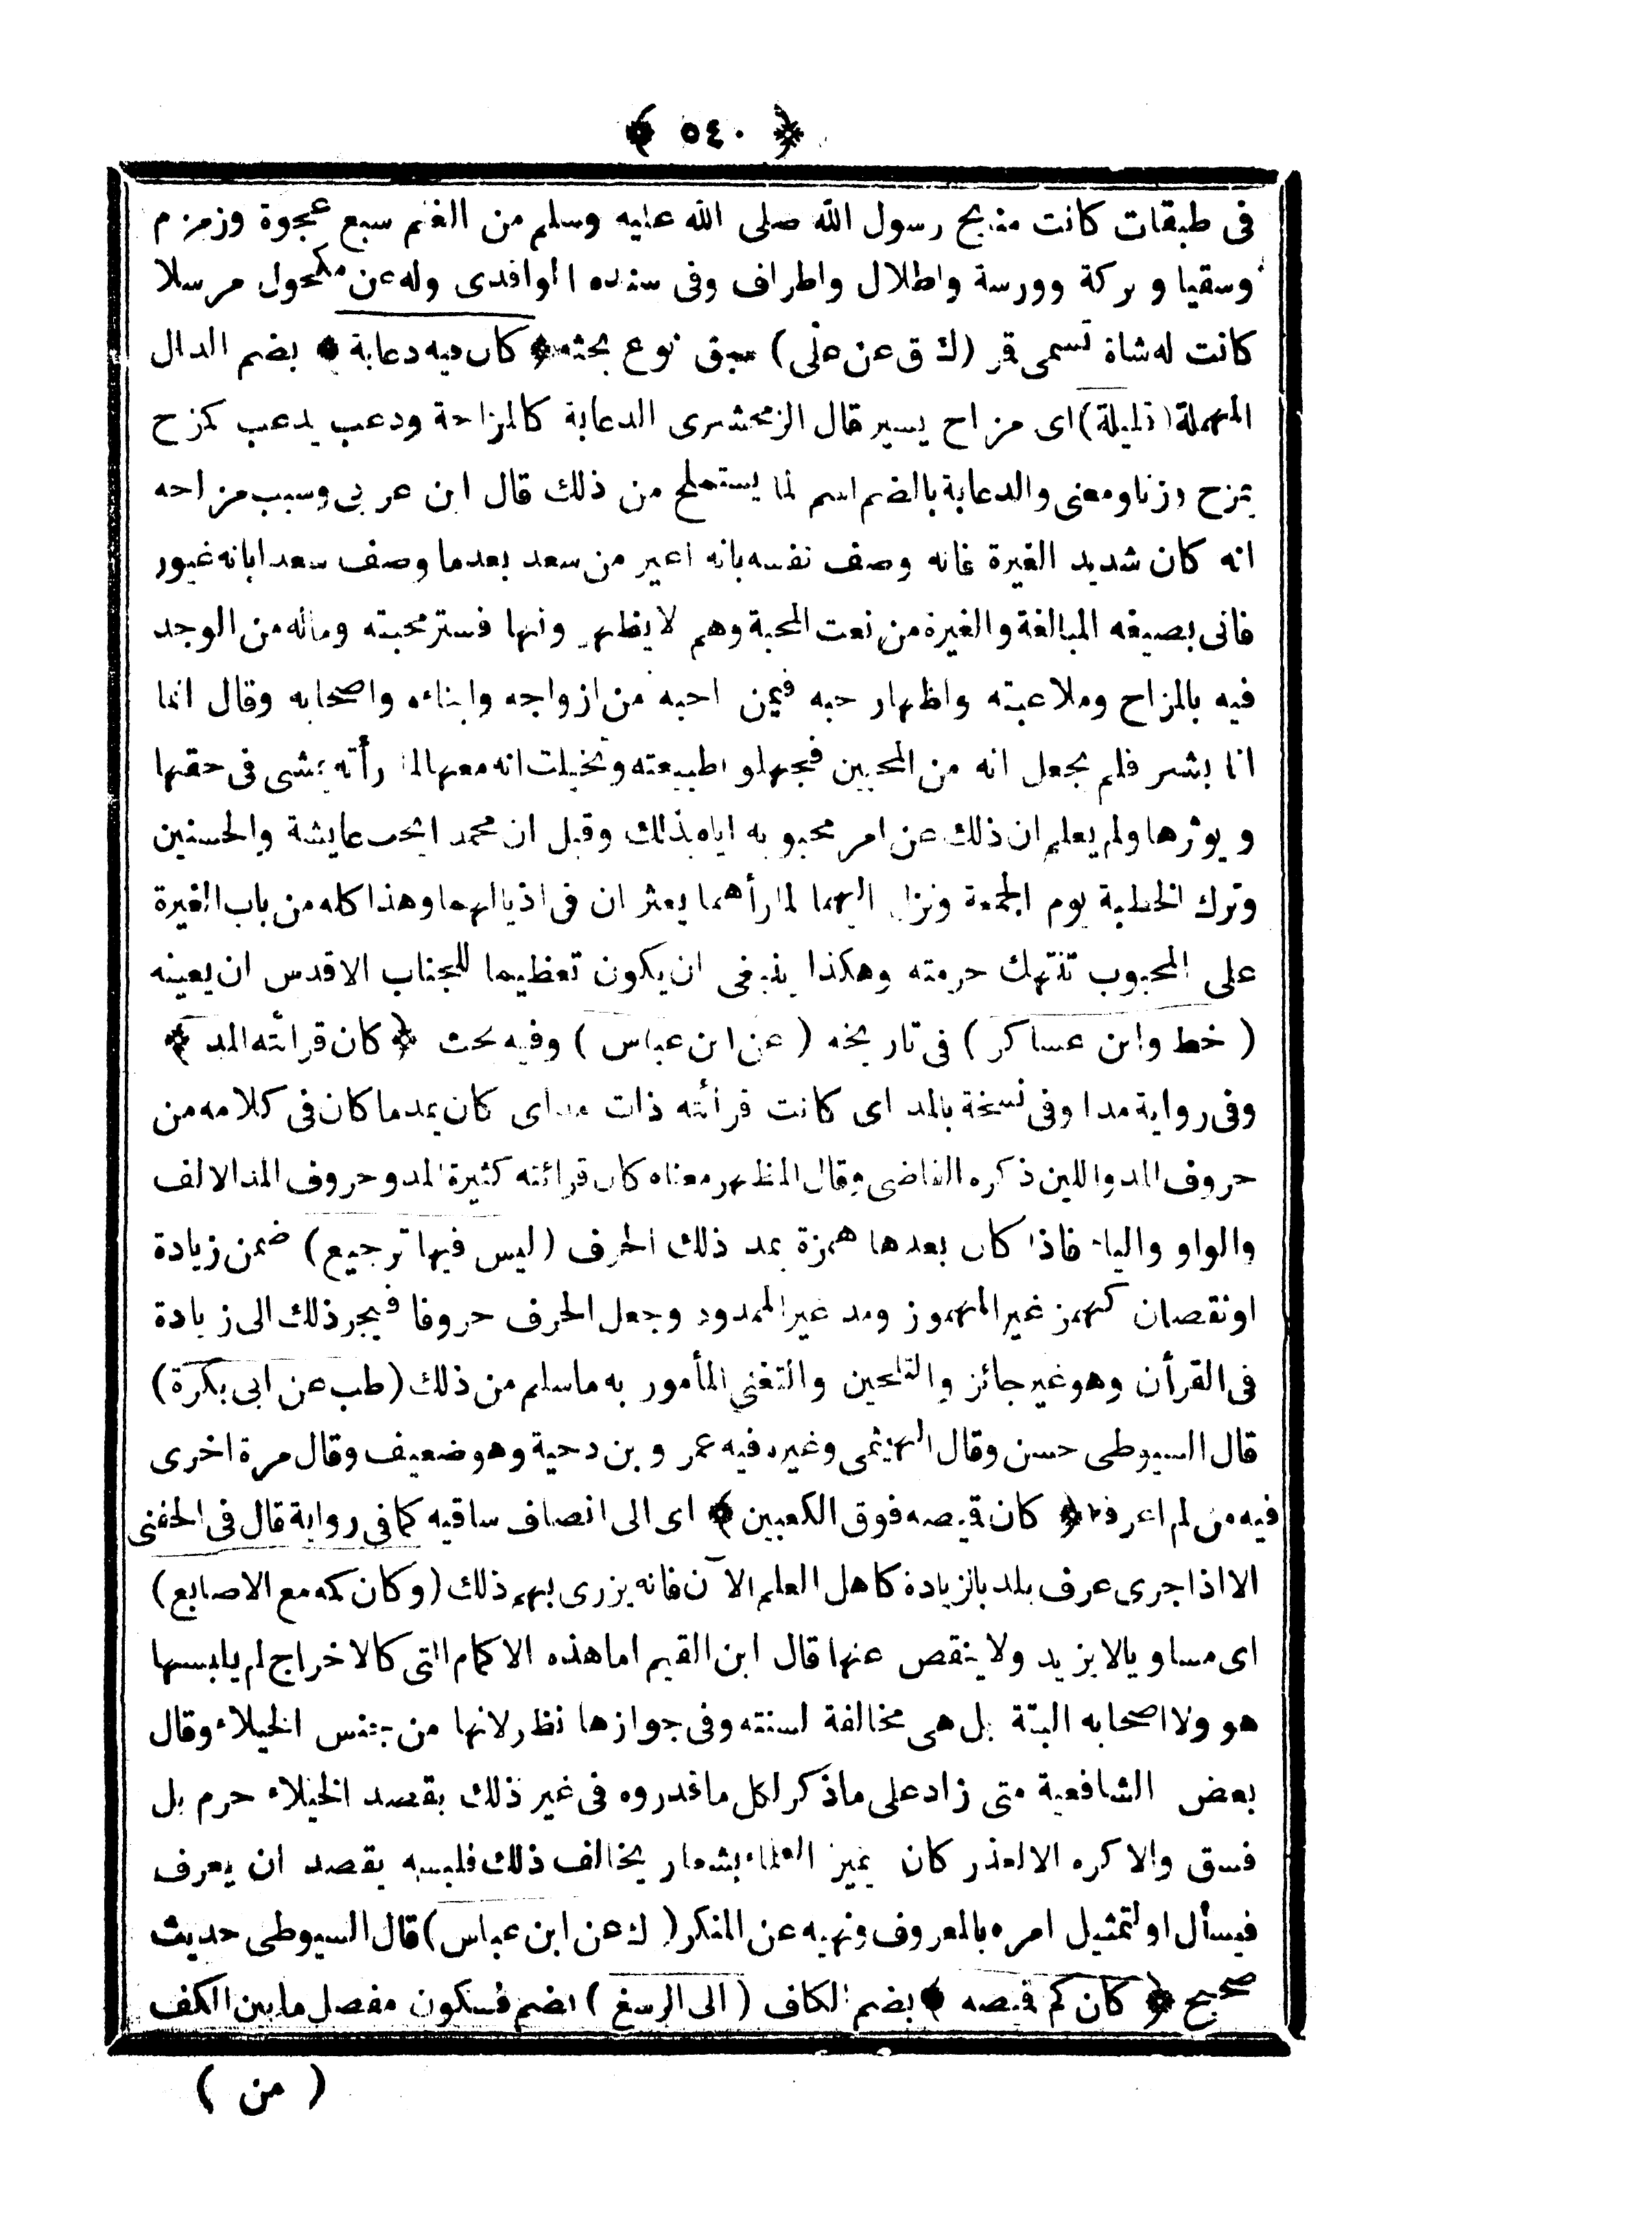 ﴿ ٥٤٠ ﴾
فى طبقات كانت منايح رسول الله صلى الله عليه وسلم من الغنم سبع عجوة وزمزم
وسقيا وبركة وورسة واطلال واطراف وفى سنده الواقدى وله عن مكحول مرسلا
كانت له شاة تسمى قر (ك ق عن على) سبق نوع بحثه ﴿ كان فيه دعابة ﴾ بضم الدال
المهملة (قليلة) اى مزاح يسير قال الزمخشرى الدعابة كالمزاحة ودعب يدعب كمزح
يمزح وزنا ومعنى والدعابة بالضم اسم لما يستملح من ذلك قال ابن عربى وسبب مزاحه
انه كان شديد الغيرة فانه وصف نفسه بانه اغير من سعد بعدما وصف سعدا بانه غيور
فاتى بصيغه المبالغة والغيرة من نعت المحبة وهم لا يظهرونها فستر محبته وماله من الوجد
فيه بالمزاح وملاعبته واظهار حبه فيمن احبه من ازواجه وابنائه واصحابه وقال انما
انا بشر فلم يجعل انه من المحبين فجهلوا طبيعته وتخيلت انه معها لما رأته يمشى فى حقها
ويوثرها ولم يعلم ان ذلك عن امر محبوبه اياه بذلك وقيل ان محمدا يحب عايشة والحسنين
وترك الخطبة يوم الجمعة ونزل اليهما لما رأهما يعثران فى اذيالهما وهذا كله من باب الغيرة
على المحبوب تنتهك حرمته وهكذا ينبغى ان يكون تعظيما للجناب الاقدس ان يعينه
( خط وابن عساكر ) فى تاريخه ( عن ابن عباس ) وفيه بحث ﴿ كان قرائته المد ﴾
وفى رواية مدا وفى نسخة بالمد اى كانت قرائته ذات مد اى كان يمد ما كان فى كلامه من
حروف المد واللين ذكره القاضى وقال المظهر معناه كان قرائته كثيرة المد وحروف المد الالف
والواو والياء فاذا كان بعدها همزة يمد ذلك الحرف (ليس فيها ترجيع) ضمن زيادة
او نقصان كهمز غير المهموز ومد غير الممدود وجعل الحرف حروفا فيجر ذلك الى زيادة
فى القرأن وهو غير جائز والتلحين والتغنى المأمور به ما سلم من ذلك (طب عن ابى بكرة)
قال السيوطى حسن وقال الهيثمى وغيره فيه عمرو بن دحية وهو ضعيف وقال مرة اخرى
فيه من لم اعرفه ﴿ كان قيصه فوق الكعبين ﴾ اى الى انصاف ساقيه كما فى رواية قال فى الحفنى
الا اذا جرى عرف بلد بالزيادة كاهل العلم الآن فانه يزرى بهم ذلك (وكان كمه مع الاصابع)
اى مساويا لا يزيد ولا ينقص عنها قال ابن القيم اما هذه الاكمام التى كالاخراج لم يلبسها
هو ولا اصحابه البتة بل هى مخالفة لسنته وفى جوازها نظر لانها من جنس الخيلاء وقال
بعض الشافعية متى زاد على ما ذكر لكل ما قدروه فى غير ذلك بقصد الخيلاء حرم بل
فسق والا كره الا لعذر كان يميز العلماء بشعار يخالف ذلك فلبسه بقصد ان يعرف
فيسأل او لتمثيل امره بالمعروف ونهيه عن المنكر (ك عن ابن عباس) قال السيوطى حديث
صحيح ﴿ كان كم قيصه ﴾ بضم الكاف (الى الرسغ) بضم فسكون مفصل ما بين الكف
( من )